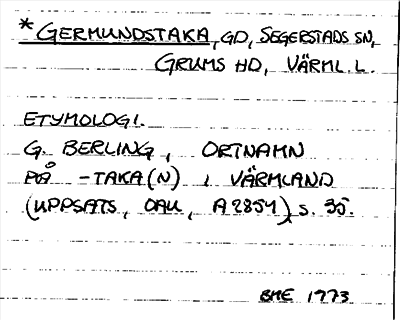 * GERMUNDSTAKA, GD, SEGERSTADS SN,
GRUMS HD, VÄRML. L.
ETYMOLOGI.
G. BERLING, ORTNAMN
PÅ -TAKA(N) I VÄRMLAND
(UPPSATS, OAU, A2854), s. 35.
BME 1973